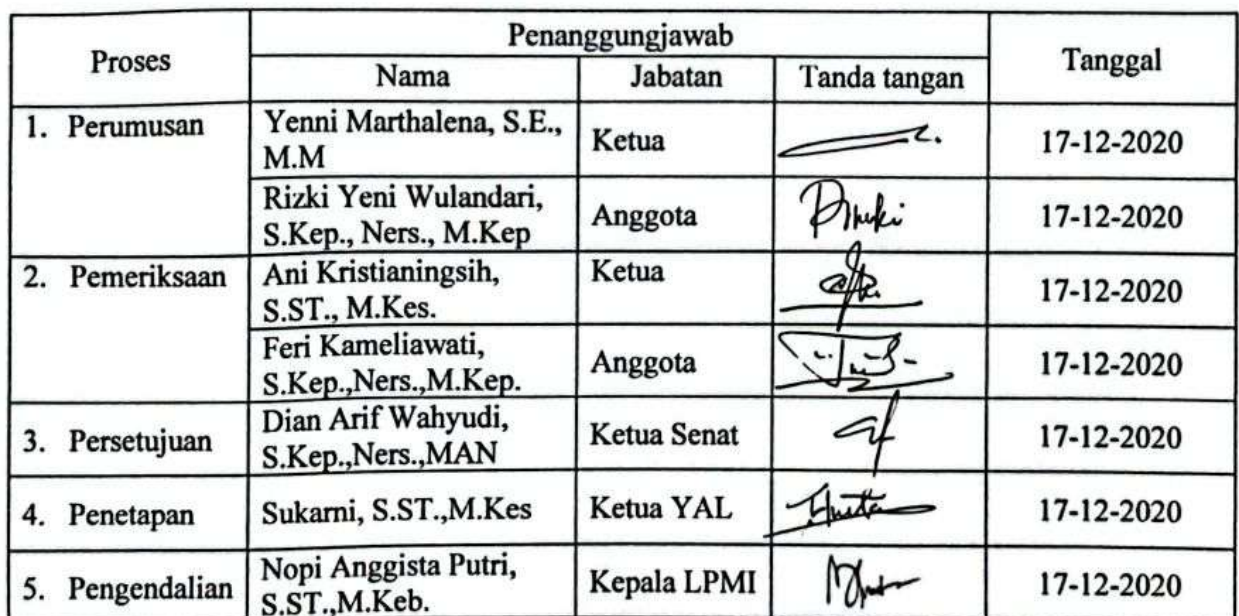 Proses
Penanggungjawab
Tanggal
Nama
Jabatan
Tanda tangan
1. Perumusan
Yenni Marthalena, S.E.,
M.M
Ketua
17-12-2020
Rizki Yeni Wulandari,
S.Kep., Ners., M.Kep
Anggota
17-12-2020
2. Pemeriksaan
Ani Kristianingsih,
S.ST., M.Kes.
Ketua
17-12-2020
Feri Kameliawati,
S.Kep.,Ners.,M.Kep.
Anggota
17-12-2020
3. Persetujuan
Dian Arif Wahyudi,
S.Kep.,Ners.,MAN
Ketua Senat
17-12-2020
4. Penetapan
Sukarni, S.ST.,M.Kes
Ketua YAL
17-12-2020
5. Pengendalian
Nopi Anggista Putri,
S.ST.,M.Keb.
Kepala LPMI
17-12-2020